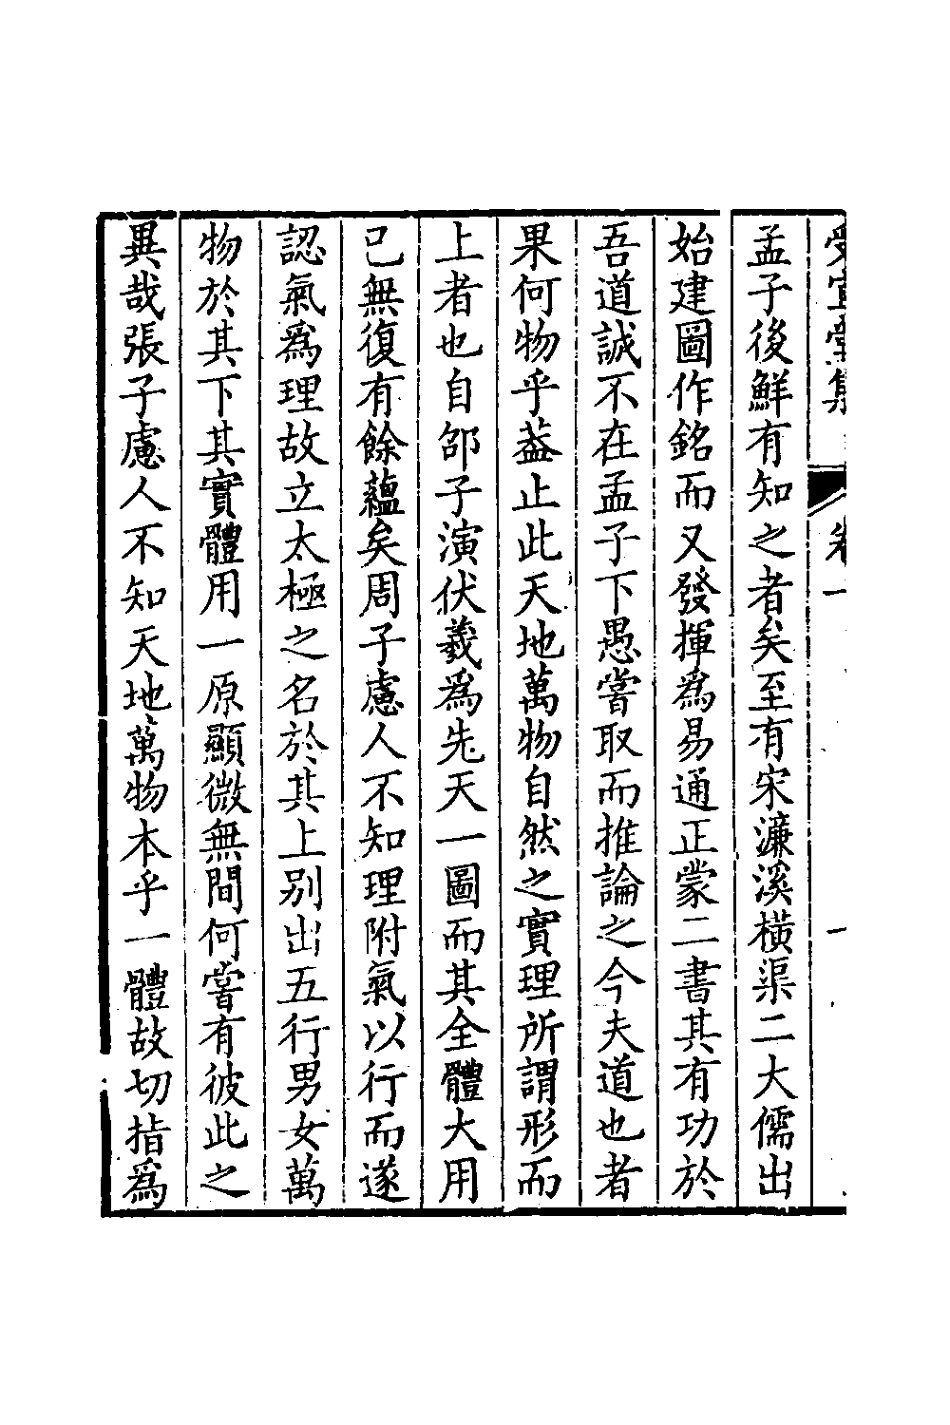 孟子後鮮有知之者矣至有宋濂溪橫渠二大儒出
始建圖作銘而又發揮為易通正蒙二書其有功於
吾道誠不在孟子下愚嘗取而推論之今夫道也者
果何物乎葢止此天地萬物自然之實理所謂形而
上者也自邵子演伏羲為先天一圖而其全體大用
已無復有餘蘊矣周子慮人不知理附氣以行而遂
認氣為理故立太極之名於其上別出五行男女萬
物於其下其實體用一原顯微無間何嘗有彼此之
異哉張子慮人不知天地萬物本乎一體故切指為